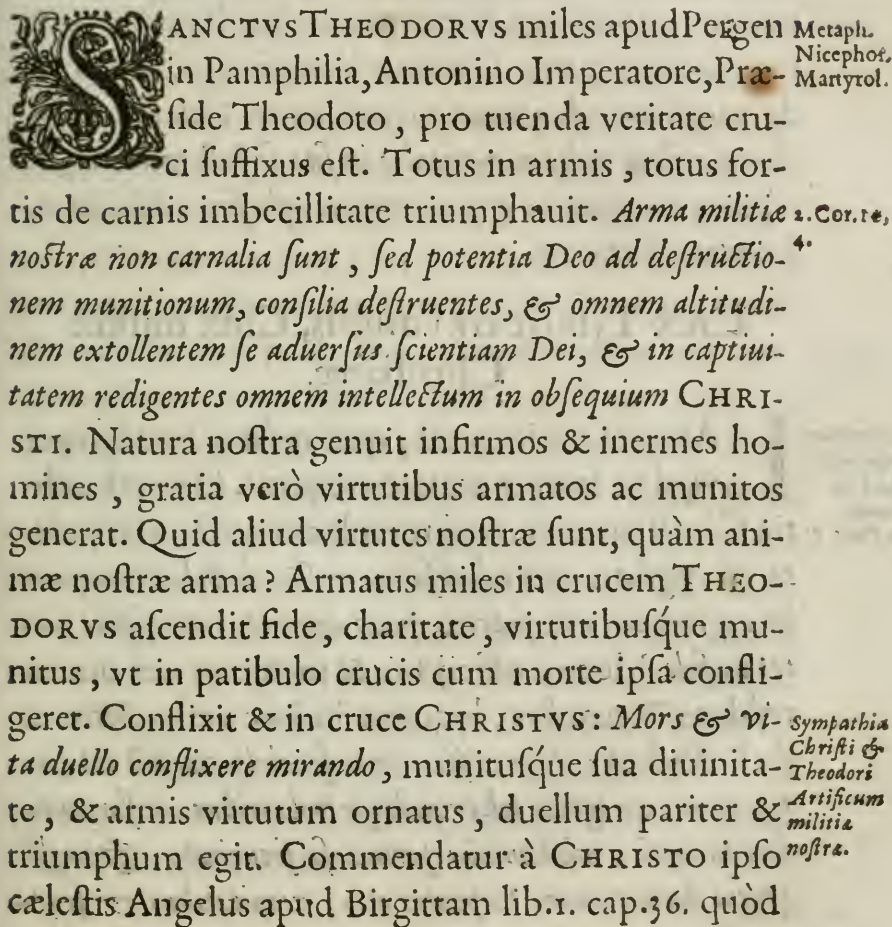 SANCTVS THEODORVS miles apud Pergen
in Pamphilia, Antonino Imperatore, Præ-
ſide Theodoto , pro tuenda veritate cru-
ci ſuffixus eſt. Totus in armis , totus for-
tis de carnis imbecillitate triumphauit. Arma militiæ
noſtræ non carnalia ſunt , ſed potentia Deo ad deſtructio-
nem munitionum, conſilia deſtruentes, & omnem altitudi-
nem extollentem ſe aduerſus ſcientiam Dei, & in captiui-
tatem redigentes omnem intellectum in obſequium CHRI-
STI. Natura noſtra genuit infirmos & inermes ho-
mines , gratia verò virtutibus armatos ac munitos
generat. Quid aliud virtutes noſtræ ſunt, quàm ani-
mæ noſtræ arma ? Armatus miles in crucem THEO-
DORVS aſcendit fide, charitate , virtutibuſq́ue mu-
nitus , vt in patibulo crucis cum morte ipſa confli-
geret. Conflixit & in cruce CHRISTVS : Mors & vi-
ta duello conflixere mirando, munituſq́ue ſua diuinita-
te , & armis virtutum ornatus , duellum pariter &
triumphum egit. Commendatur à CHRISTO ipſo
cæleſtis Angelus apud Birgittam lib.1. cap.36. quòd
Metaph.
Nicephor.
Martyrol.
2.Cor.10,
4.
Sympathia
Chriſti &
Theodori
Artificum
militiæ
noſtræ.